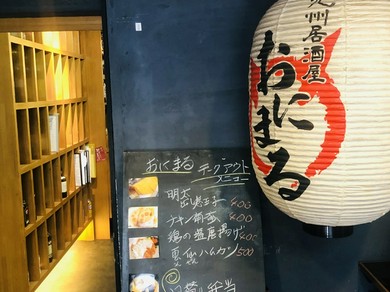 九州居酒屋
おにまる
おにまる テークアウト
メニュー
明太
出し巻玉子 400
チキン南蛮 400
鶏の塩唐揚げ 400
ハムカツ 500
弁当